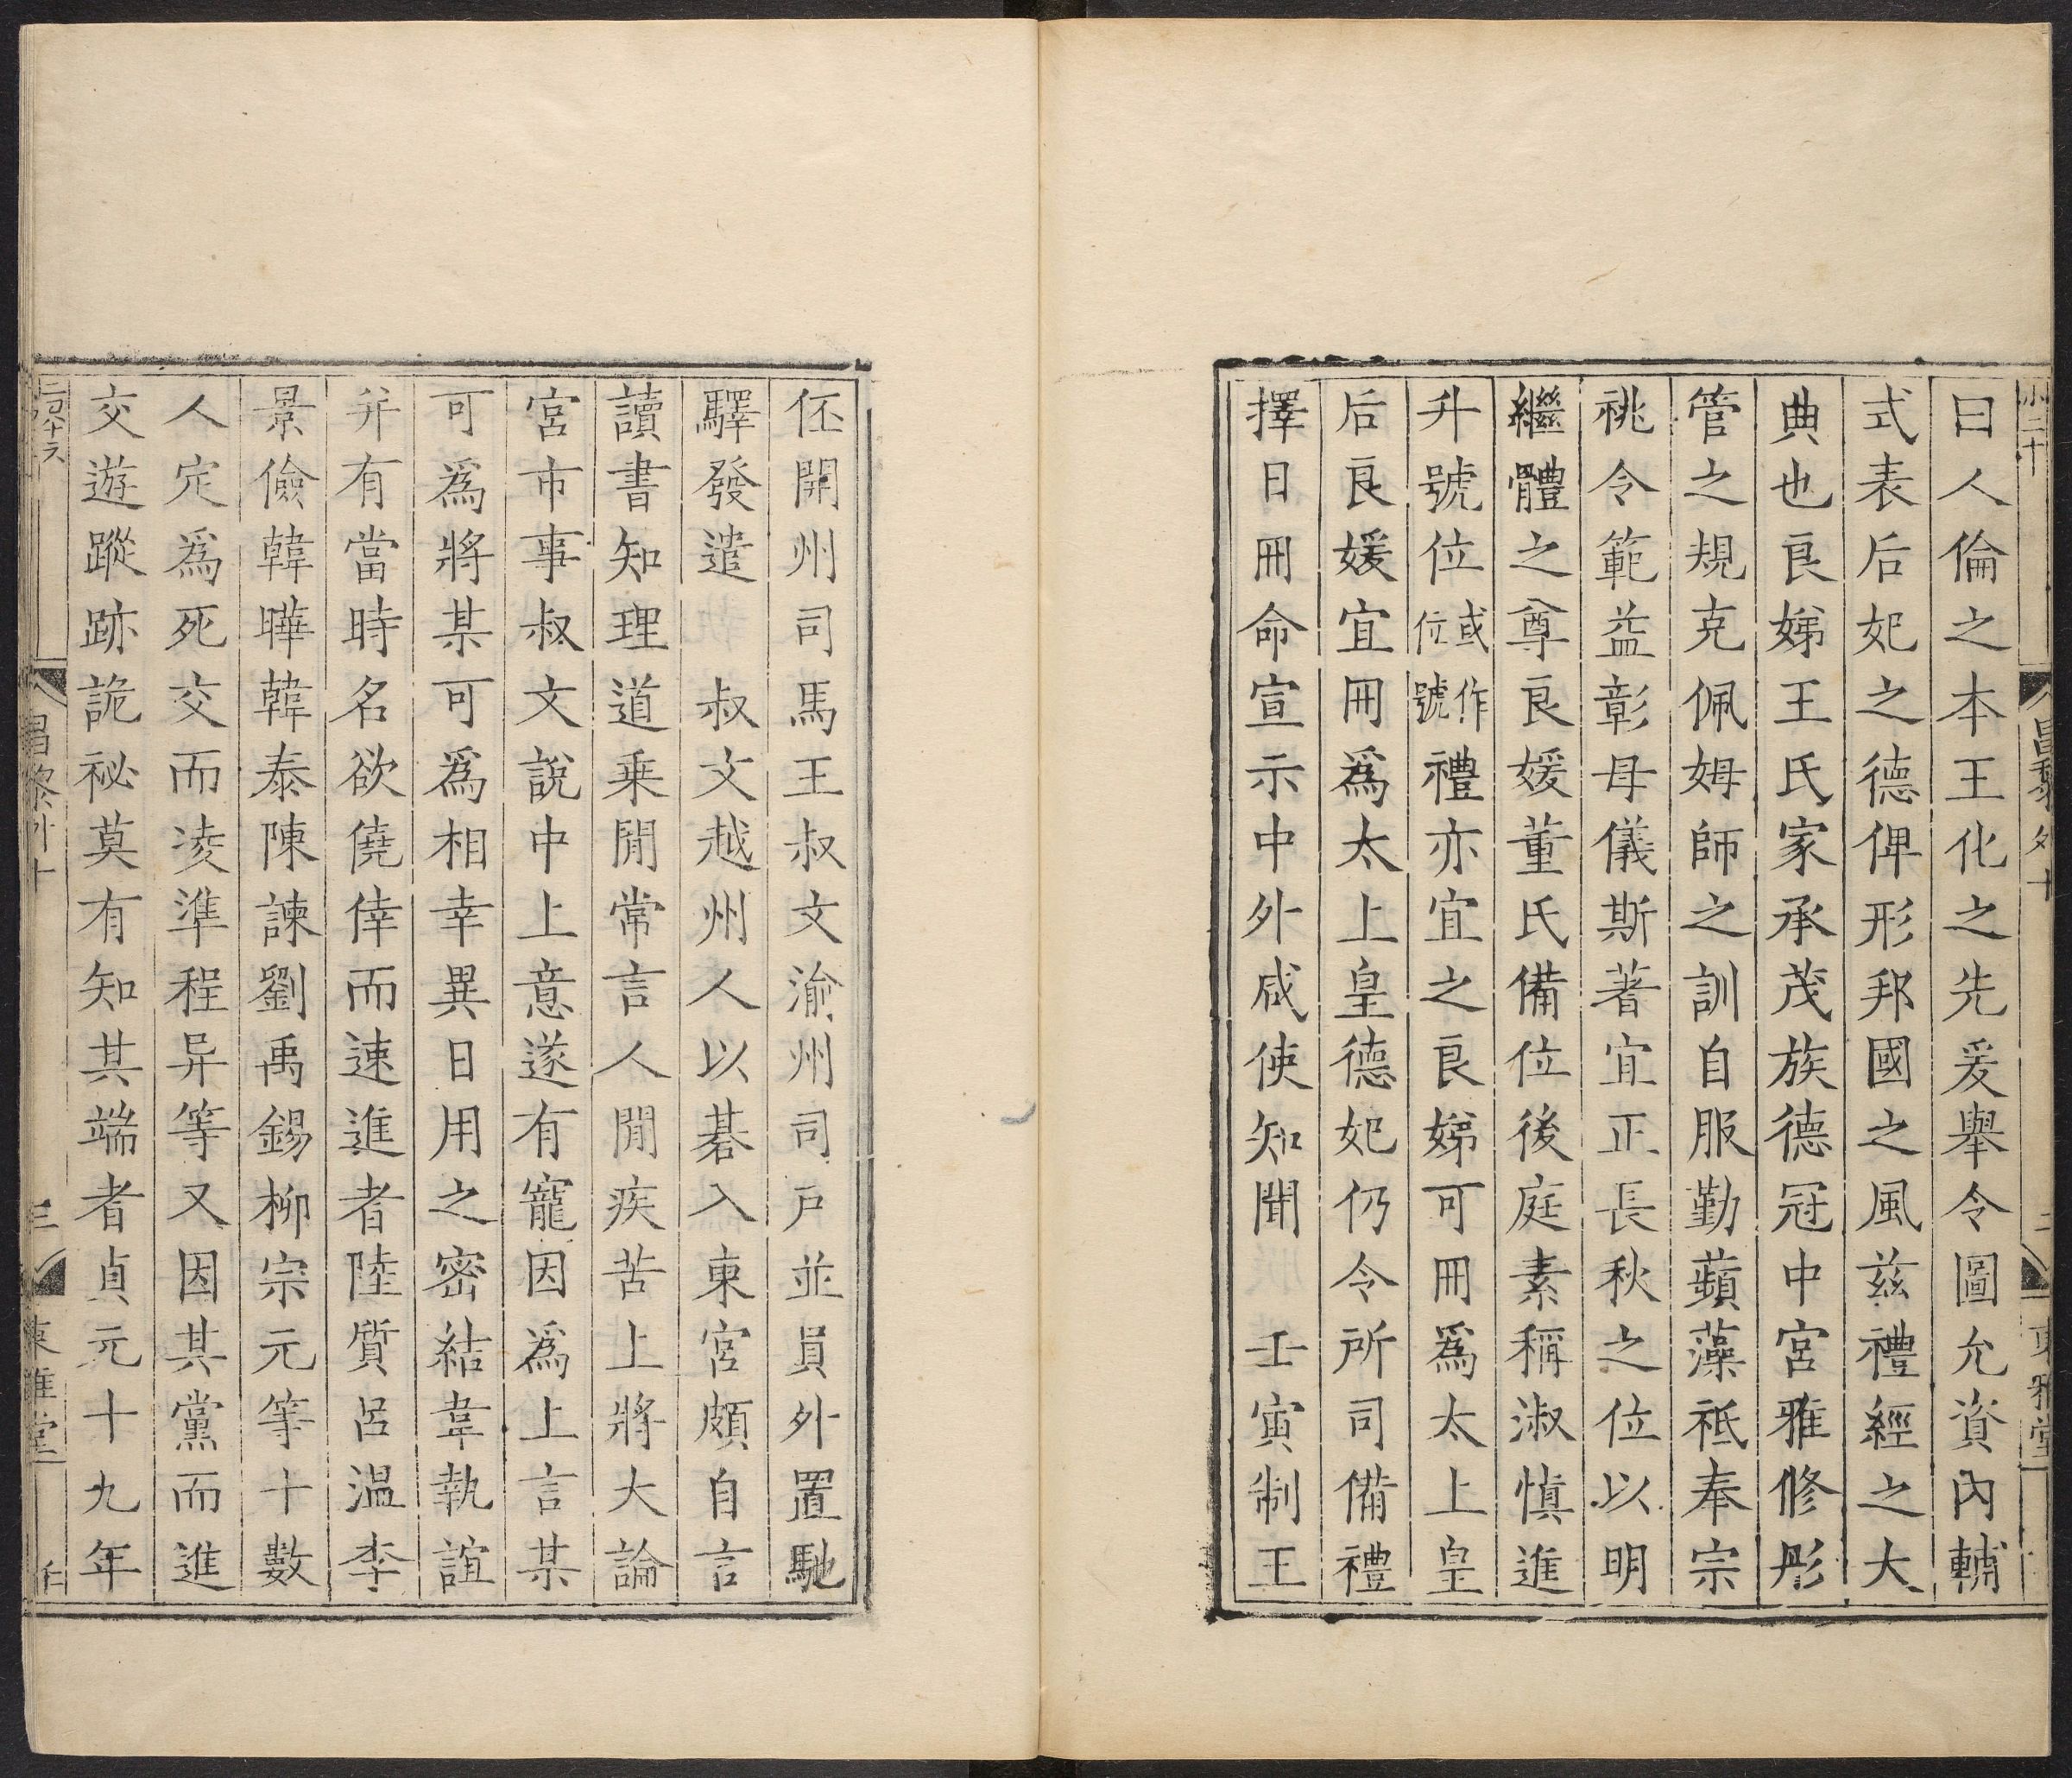 曰人倫之本王化之先爰舉令圖允資內輔
式表后妃之德俾形邦國之風兹禮經之大
典也良娣王氏家承茂族德冠中宮雅修彤
管之規克佩姆師之訓自服勤蘋藻祗奉宗
祧令範益彰母儀斯著宜正長秋之位以明
繼體之尊良媛董氏備位後庭素稱淑慎進
升號位或作位號禮亦宜之良娣可冊爲太上皇
后良媛宜冊爲太上皇德妃仍令所司備禮
擇日冊命宣示中外咸使知聞 壬寅制王
伾開州司馬王叔文渝州司戶並員外置馳
驛發遣 叔文越州人以碁入東宮頗自言
讀書知理道乗閒常言人閒疾苦上將大論
宮市事叔文說中上意遂有寵因爲上言某
可爲將某可爲相幸異日用之密結韋執誼
并有當時名欲僥倖而速進者陸質呂溫李
景儉韓曄韓泰陳諫劉禹錫柳宗元等十數
人定爲死交而凌準程异等又因其黨而進
交遊蹤跡詭祕莫有知其端者貞元十九年
昌黎外十
三
東雅堂